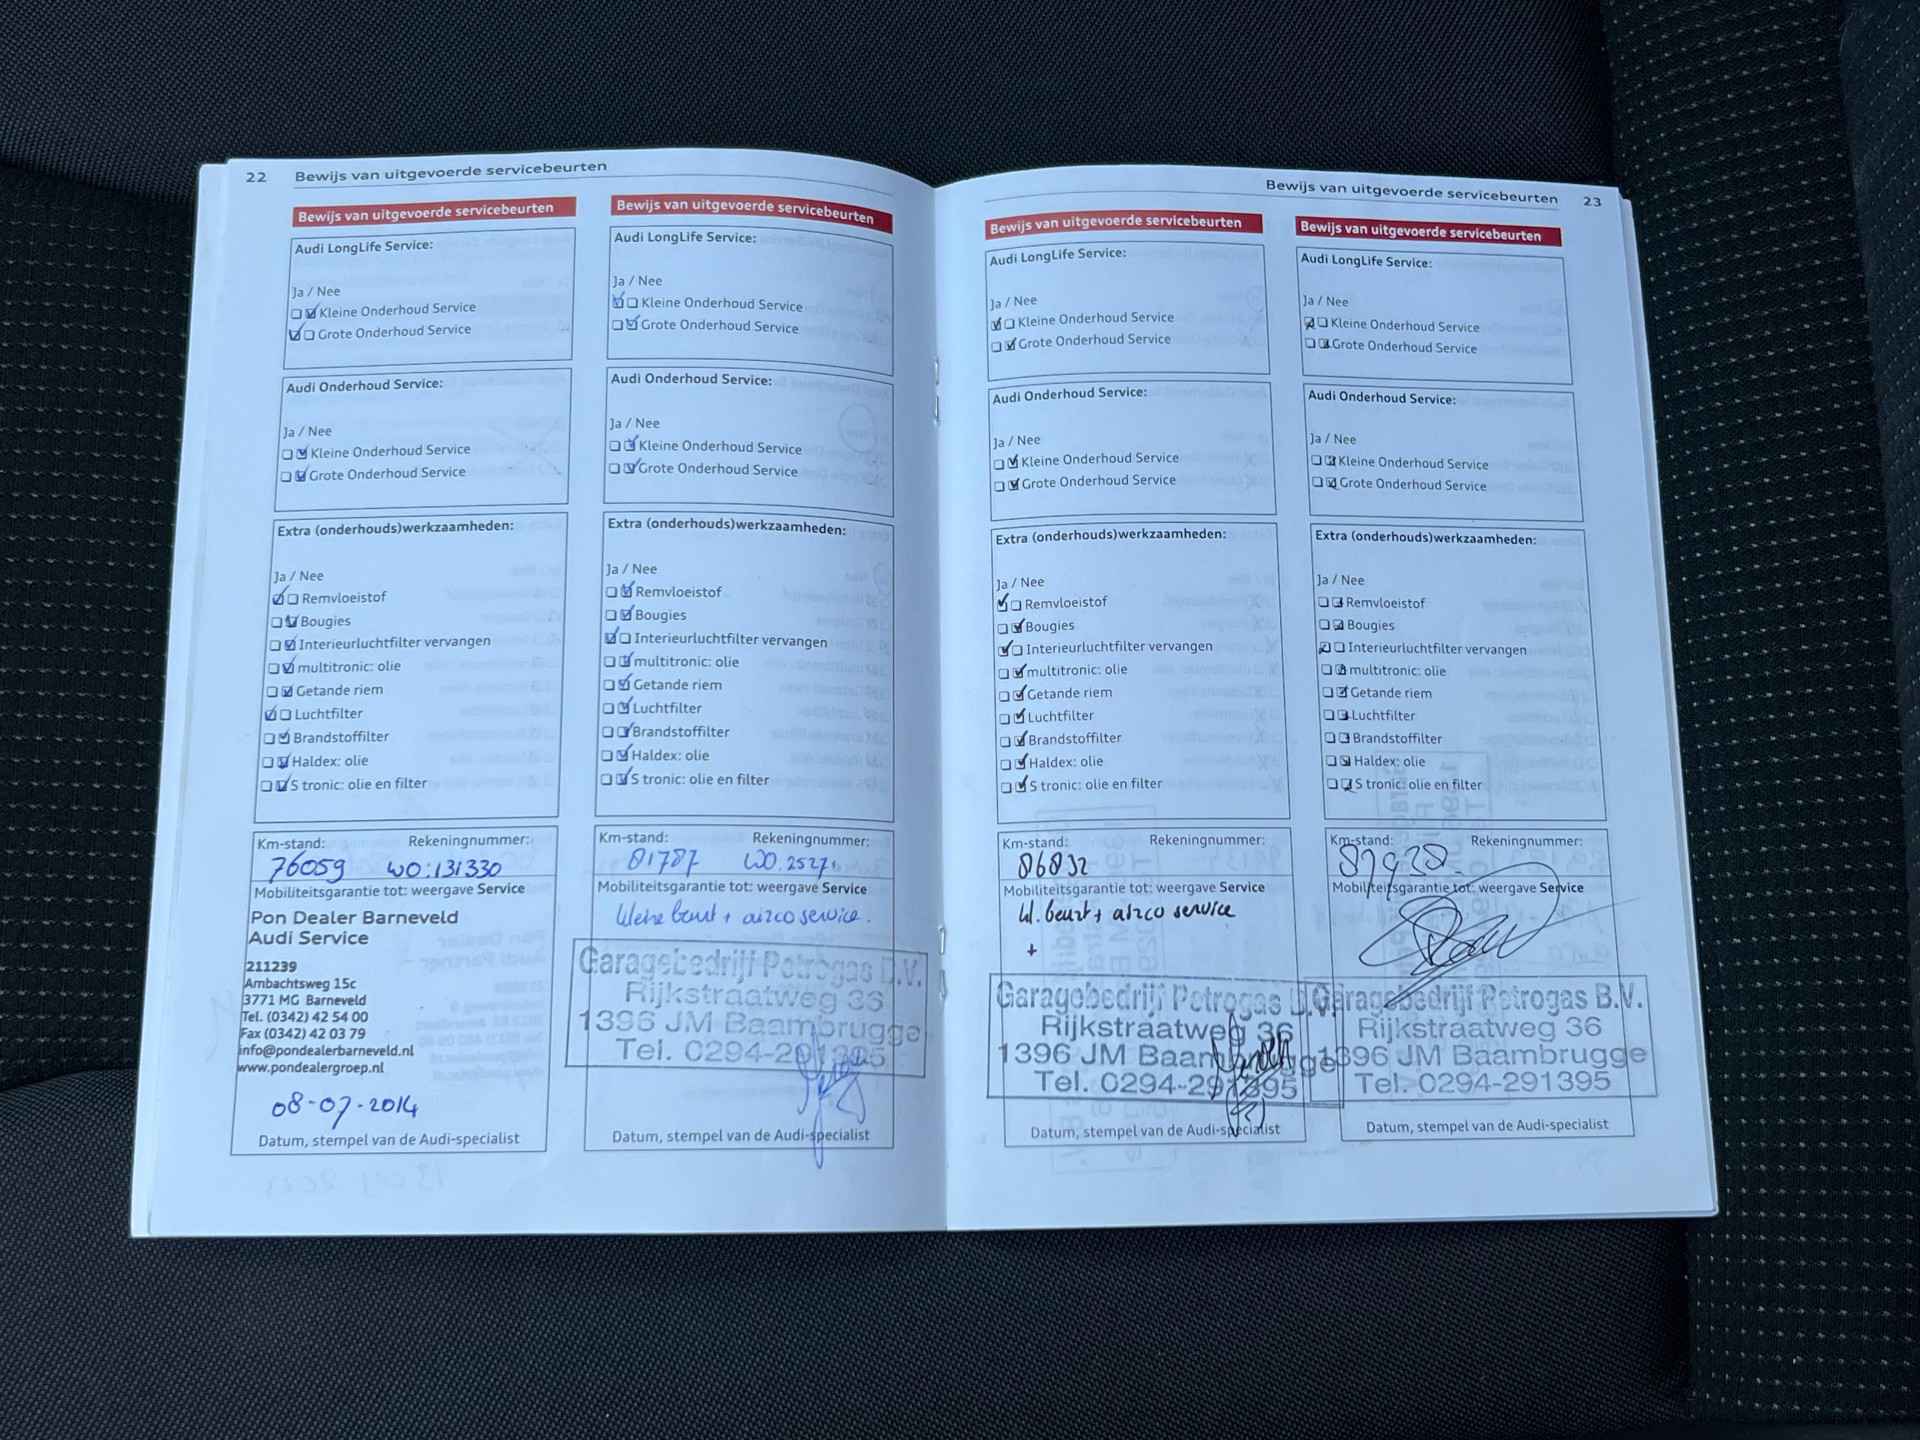 22 Bewijs van uitgevoerde servicebeurten
Bewijs van uitgevoerde servicebeurten
Audi LongLife Service:
Ja / Nee
Kleine Onderhoud Service
Grote Onderhoud Service
Audi Onderhoud Service:
Ja / Nee
Kleine Onderhoud Service
Grote Onderhoud Service
Extra (onderhouds)werkzaamheden:
Ja / Nee
Remvloeistof
Bougies
Interieurluchtfilter vervangen
multitronic: olie
Getande riem
Luchtfilter
Brandstoffilter
Haldex: olie
S tronic: olie en filter
Km-stand: Rekeningnummer:
76059 WO:131330
Mobiliteitsgarantie tot: weergave Service
Pon Dealer Barneveld
Audi Service
211239
Ambachtsweg 15c
3771 MG Barneveld
Tel. (0342) 42 54 00
Fax (0342) 42 03 79
info@pondealerbarneveld.nl
www.pondealergroep.nl
08-07-2014
Datum, stempel van de Audi-specialist
Bewijs van uitgevoerde servicebeurten
Audi LongLife Service:
Ja / Nee
Kleine Onderhoud Service
Grote Onderhoud Service
Audi Onderhoud Service:
Ja / Nee
Kleine Onderhoud Service
Grote Onderhoud Service
Extra (onderhouds)werkzaamheden:
Ja / Nee
Remvloeistof
Bougies
Interieurluchtfilter vervangen
multitronic: olie
Getande riem
Luchtfilter
Brandstoffilter
Haldex: olie
S tronic: olie en filter
Km-stand: Rekeningnummer:
81787
Mobiliteitsgarantie tot: weergave Service
kleine beurt + airco service.
Garagebedrijf Petrogas B.V.
Rijkstraatweg 36
1396 JM Baambrugge
Tel. 0294-291395
Datum, stempel van de Audi-specialist
Bewijs van uitgevoerde servicebeurten 23
Bewijs van uitgevoerde servicebeurten
Audi LongLife Service:
Ja / Nee
Kleine Onderhoud Service
Grote Onderhoud Service
Audi Onderhoud Service:
Ja / Nee
Kleine Onderhoud Service
Grote Onderhoud Service
Extra (onderhouds)werkzaamheden:
Ja / Nee
Remvloeistof
Bougies
Interieurluchtfilter vervangen
multitronic: olie
Getande riem
Luchtfilter
Brandstoffilter
Haldex: olie
S tronic: olie en filter
Km-stand: Rekeningnummer:
86832
Mobiliteitsgarantie tot: weergave Service
kl. beurt + airco service
+
Garagebedrijf Petrogas B.V.
Rijkstraatweg 36
1396 JM Baambrugge
Tel. 0294-291395
Datum, stempel van de Audi-specialist
Bewijs van uitgevoerde servicebeurten
Audi LongLife Service:
Ja / Nee
Kleine Onderhoud Service
Grote Onderhoud Service
Audi Onderhoud Service:
Ja / Nee
Kleine Onderhoud Service
Grote Onderhoud Service
Extra (onderhouds)werkzaamheden:
Ja / Nee
Remvloeistof
Bougies
Interieurluchtfilter vervangen
multitronic: olie
Getande riem
Luchtfilter
Brandstoffilter
Haldex: olie
S tronic: olie en filter
Km-stand: Rekeningnummer:
Mobiliteitsgarantie tot: weergave Service
Garagebedrijf Petrogas B.V.
Rijkstraatweg 36
1396 JM Baambrugge
Tel. 0294-291395
Datum, stempel van de Audi-specialist